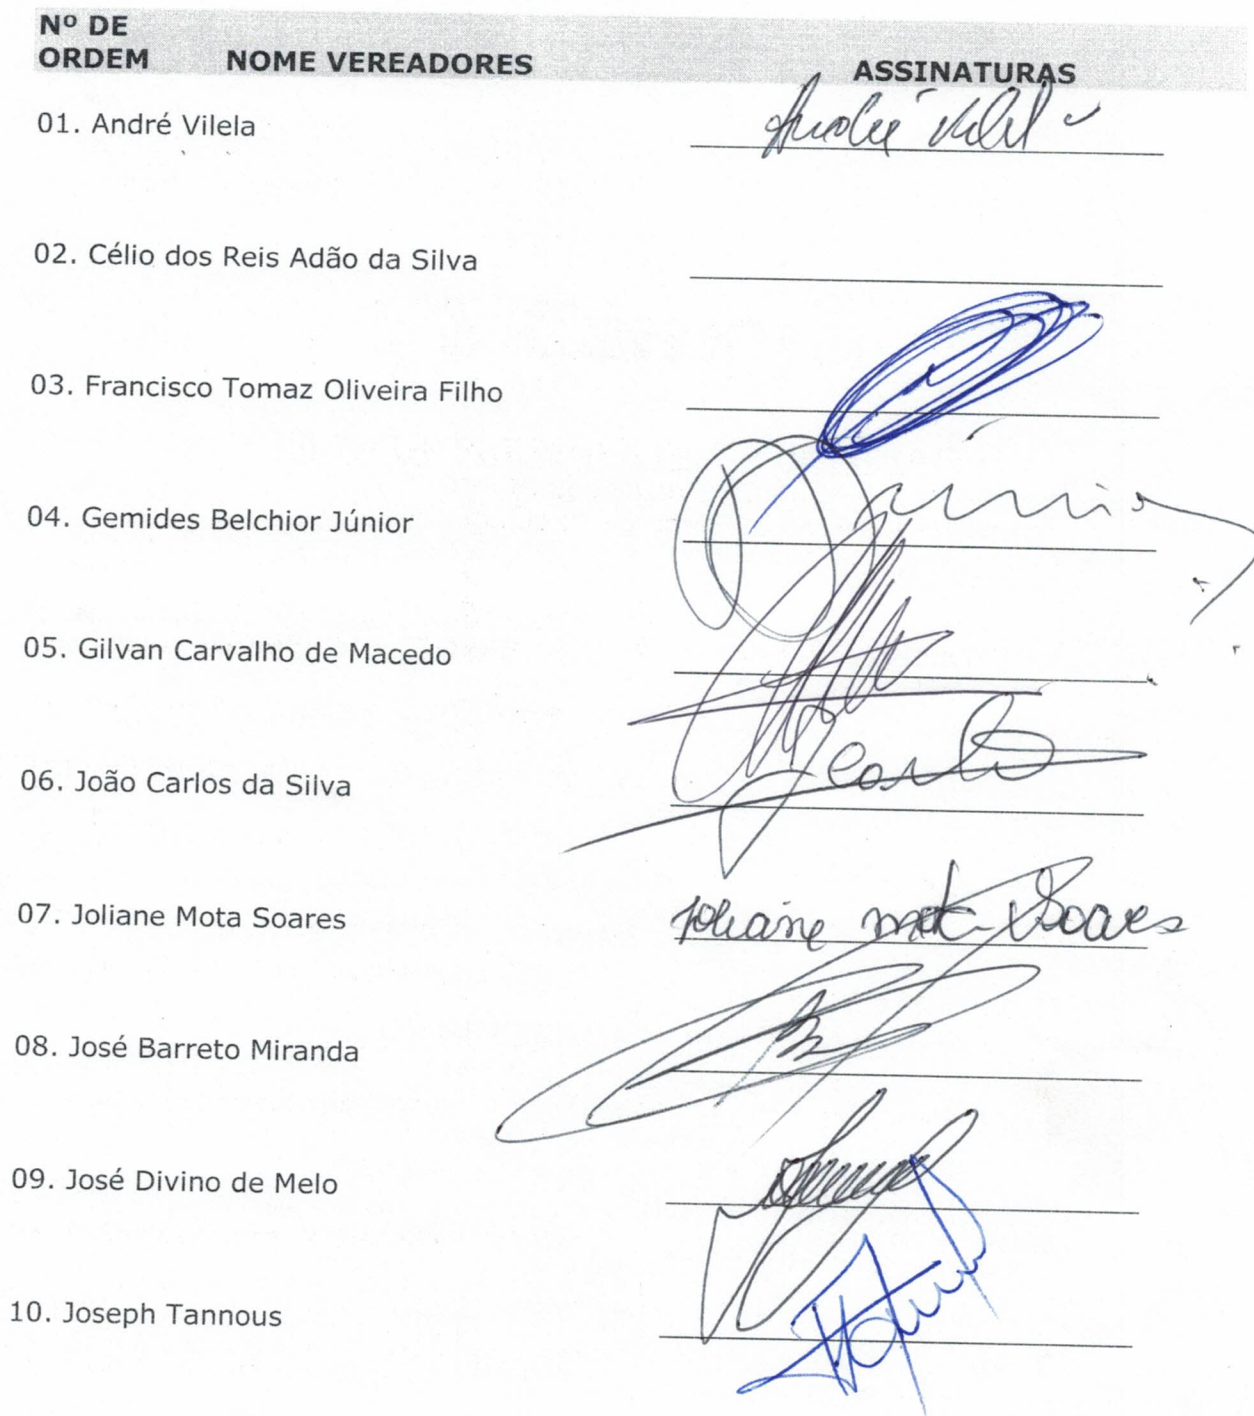 Nº DE
ORDEM NOME VEREADORES ASSINATURAS
01. André Vilela André Vilela
02. Célio dos Reis Adão da Silva
03. Francisco Tomaz Oliveira Filho
04. Gemides Belchior Júnior Júnior
05. Gilvan Carvalho de Macedo
06. João Carlos da Silva
07. Joliane Mota Soares Joliane Mota Soares
08. José Barreto Miranda
09. José Divino de Melo
10. Joseph Tannous